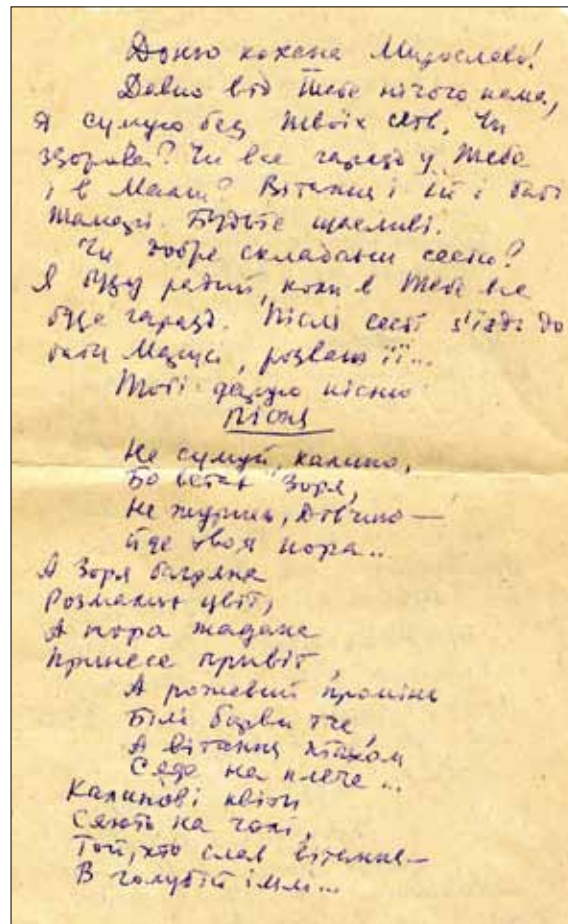 Доню кохана Мирославо!
Давно від Тебе нічого нема,
Я сумую без Твоїх слів. Чи
здорова? Чи все гаразд у Тебе
і в Мами? Вітання і їй і бабі
Будьте щасливі.
Чи добре складаєш сесію?
Я буду радий, коли в Тебе все
буде гаразд. Після сесії з'їзди до
розваж її...
Тобі дарую пісню
Пісня
Не сумуй, калино,
Бо встає Зоря,
Не журись, Дівчино —
йде твоя пора..
А Зоря багряна
Розмаює цвіт,
А пора жадана
Принесе привіт,
А рожевий промінь
Білі барви тче,
А вітання птахом
Сяде на плече...
Калинові квіти
Сяють на чолі,
Той, хто слав вітання —
В голубій імлі...